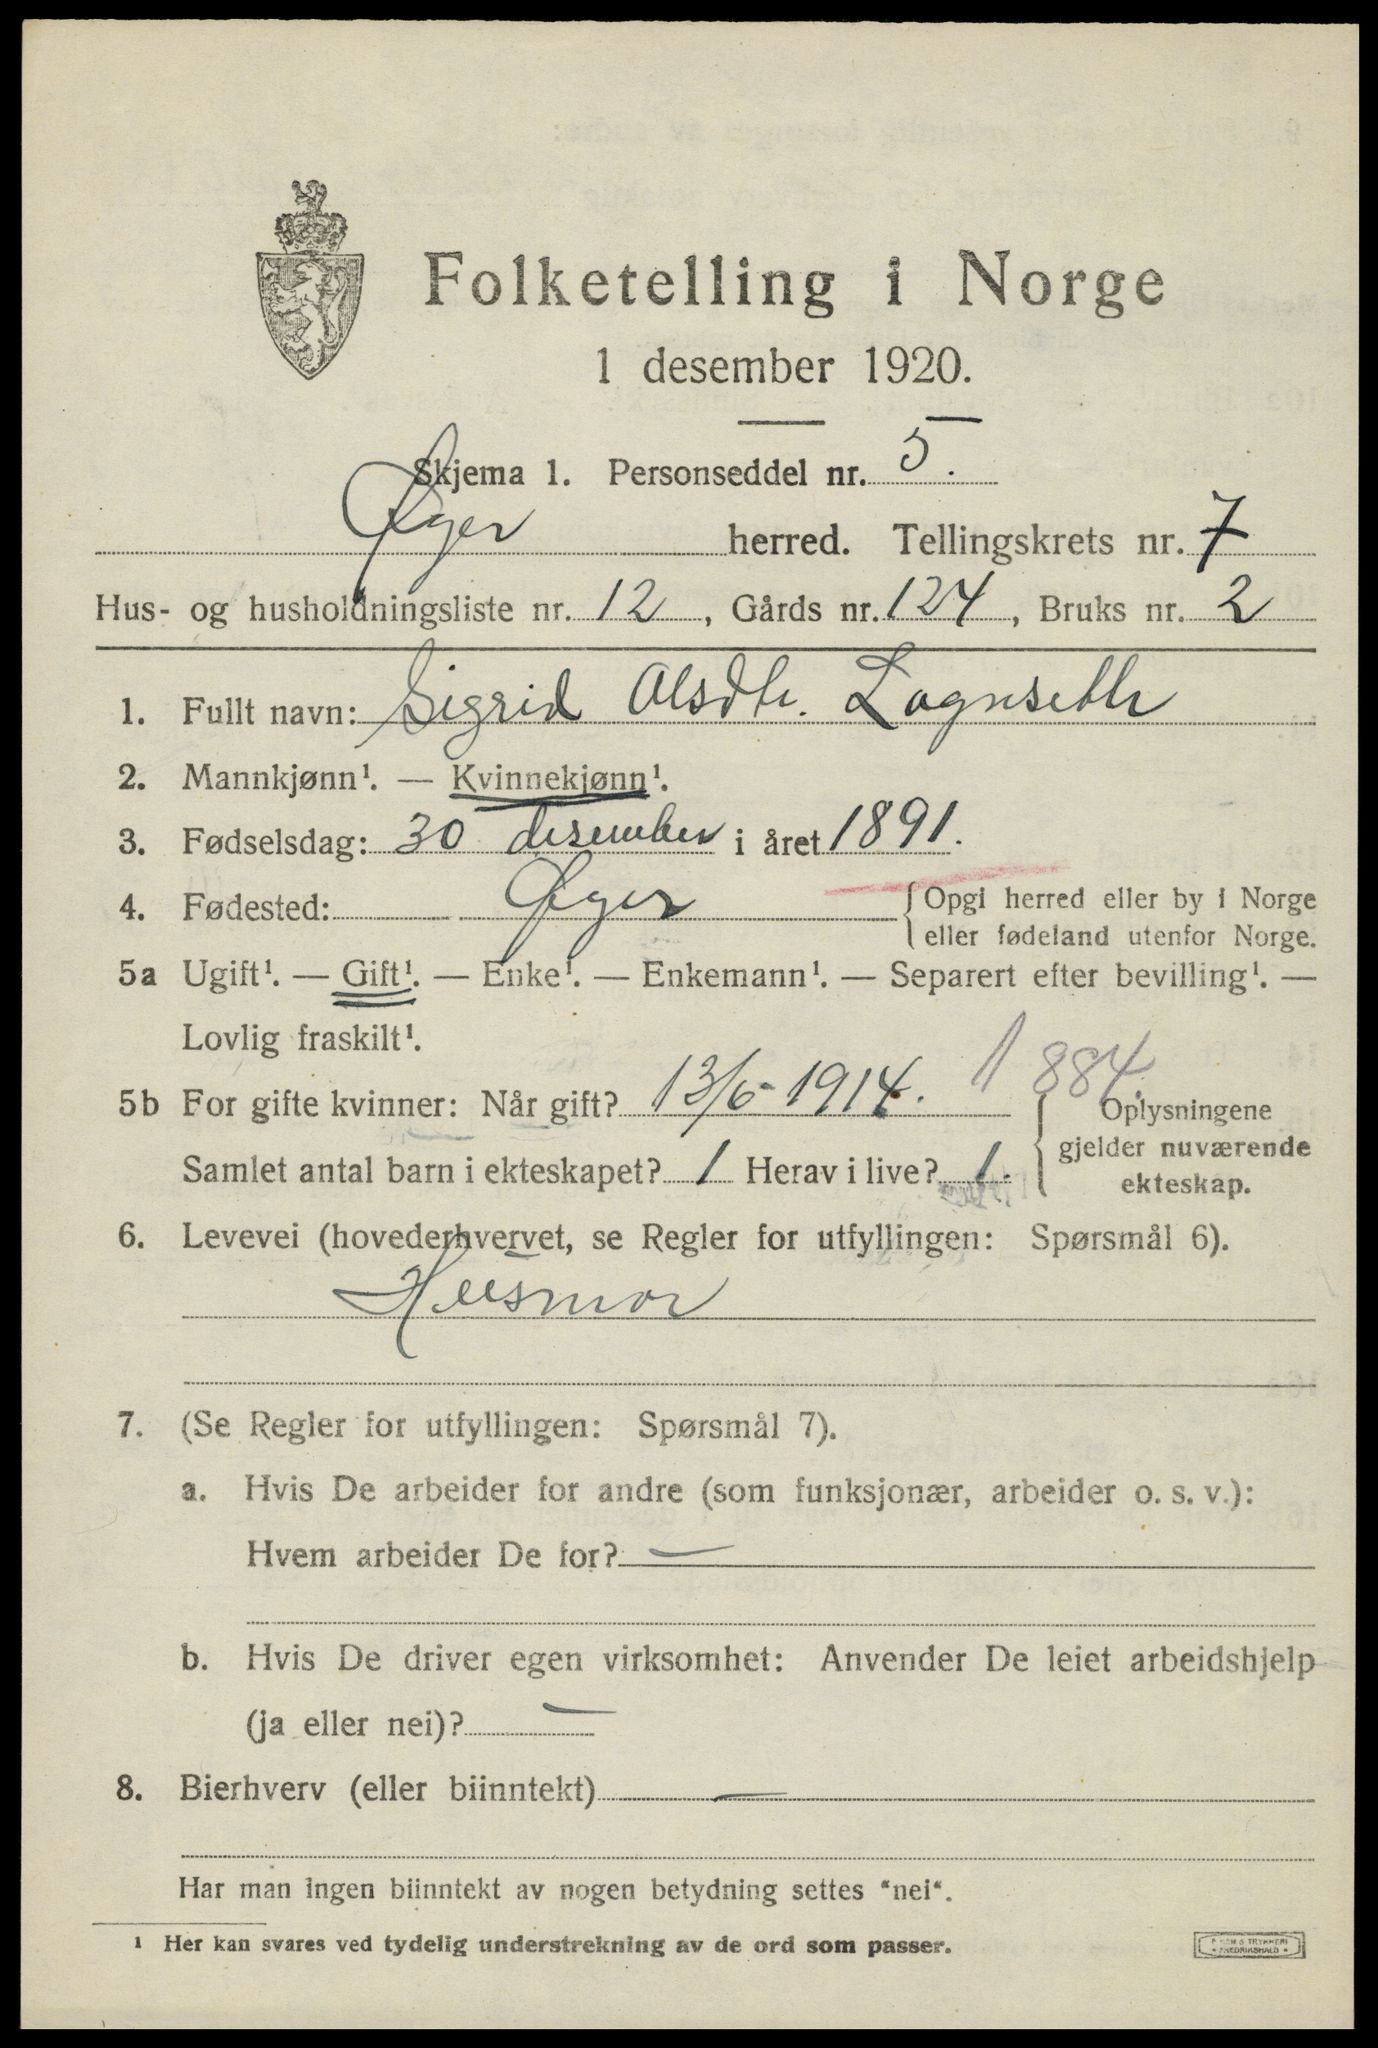 Folketelling i Norge
1 desember 1920.
Skjema 1. Personseddel nr. 5.
Øyer herred. Tellingskrets nr. 7
Hus- og husholdningsliste nr. 12, Gårds nr. 124, Bruks nr. 2
1. Fullt navn: Sigrid Olsdtr.
2. Mannkjønn¹. — Kvinnekjønn¹.
3. Fødselsdag: 30 desember i året 1891.
4. Fødested: Øyer {Opgi herred eller by i Norge
eller fødeland utenfor Norge.
5a Ugift¹. — Gift¹. — Enke¹. — Enkemann¹. — Separert efter bevilling¹. —
Lovlig fraskilt¹.
1884.
5b For gifte kvinner: Når gift? 13/6-1914.
Samlet antal barn i ekteskapet? 1 Herav i live? 1.
{Oplysningene
gjelder nuværende
ekteskap.
6. Levevei (hovederhvervet, se Regler for utfyllingen: Spørsmål 6).
Husmor
7. (Se Regler for utfyllingen: Spørsmål 7).
a. Hvis De arbeider for andre (som funksjonær, arbeider o. s. v.):
Hvem arbeider De for? —
b. Hvis De driver egen virksomhet: Anvender De leiet arbeidshjelp
(ja eller nei)? —
8. Bierhverv (eller biinntekt) —
Har man ingen biinntekt av nogen betydning settes "nei".
¹ Her kan svares ved tydelig understrekning av de ord som passer.